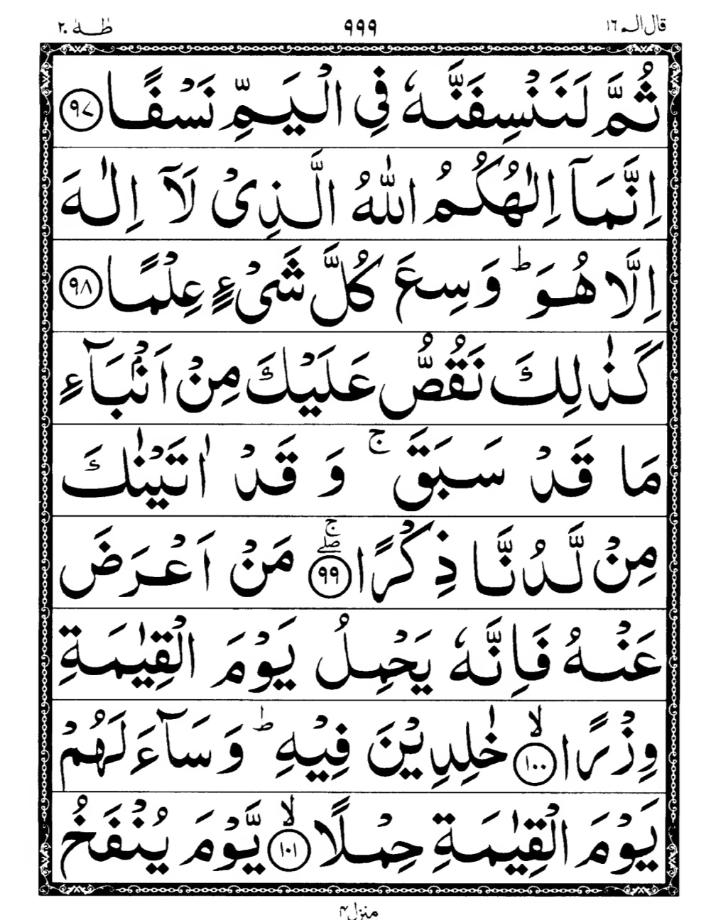 قال الم ١٦ ٩٩٩ طٰهٰ ٢٠
ثُمَّ لَنَنْسِفَنَّهٗ فِي الْيَمِّ نَسْفًا ﴿۹۷﴾
اِنَّمَاۤ اِلٰهُكُمُ اللّٰهُ الَّذِىْ لَاۤ اِلٰهَ
اِلَّا هُوَ ؕ وَسِعَ كُلَّ شَىْءٍ عِلْمًا ﴿۹۸﴾
كَذٰلِكَ نَقُصُّ عَلَيْكَ مِنْ اَنْۢبَآءِ
مَا قَدْ سَبَقَ ۚ وَ قَدْ اٰتَيْنٰكَ
مِنْ لَّدُنَّا ذِكْرًا ۖۚ ﴿۹۹﴾ مَنْ اَعْرَضَ
عَنْهُ فَاِنَّهٗ يَحْمِلُ يَوْمَ الْقِيٰمَةِ
وِزْرًا ۙ ﴿۱۰۰﴾ خٰلِدِيْنَ فِيْهِ ؕ وَسَآءَ لَهُمْ
يَوْمَ الْقِيٰمَةِ حِمْلًا ۙ ﴿۱۰۱﴾ يَّوْمَ يُنْفَخُ
منزل ۴